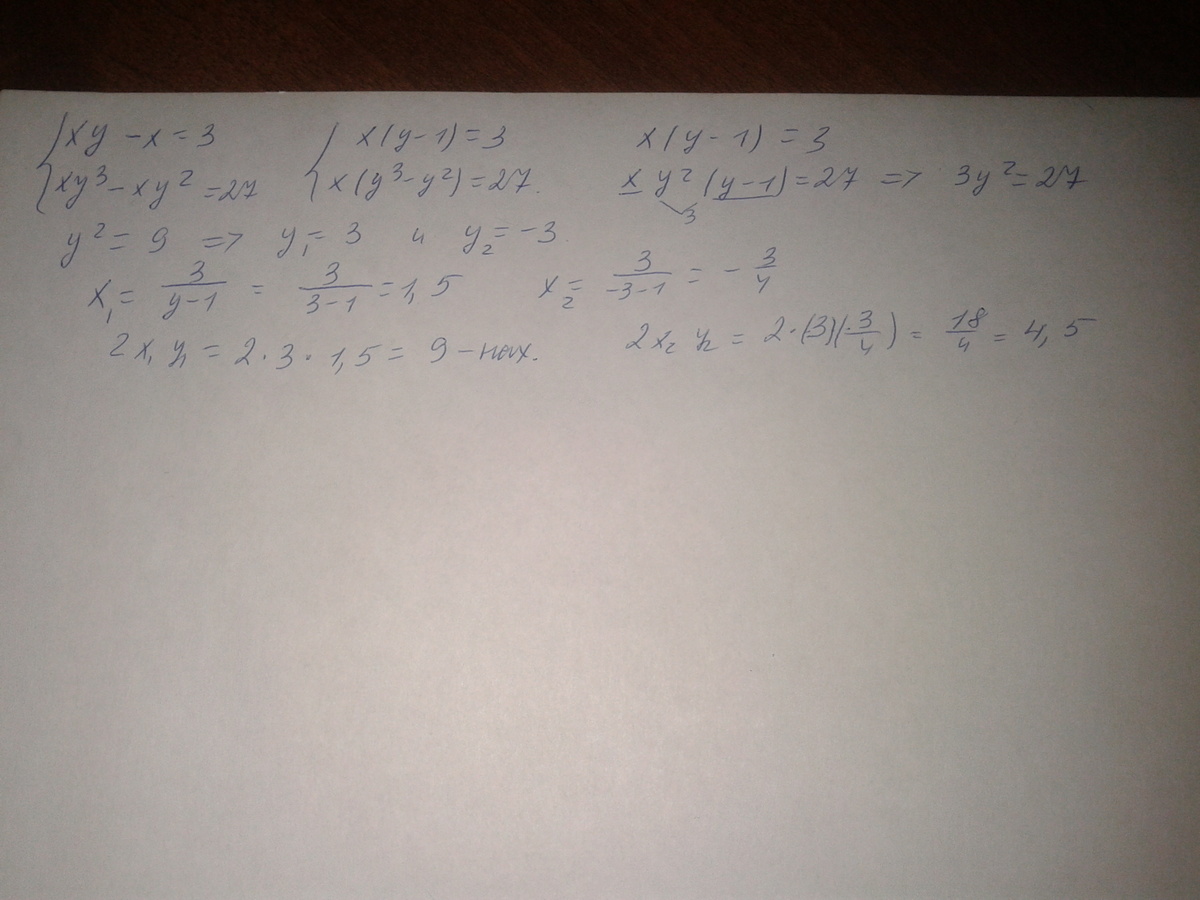 {xy - x = 3 {x(y-1) = 3 x(y-1) = 3
{xy³ - xy² = 27 {x(y³-y²) = 27. x y² (y-1) = 27 => 3y² = 27
3
y² = 9 => y₁ = 3 и y₂ = -3
x₁ = 3/(y-1) = 3/(3-1) = 1,5 x₂ = 3/(-3-1) = - 3/4
2x₁y₁ = 2·3·1,5 = 9 - нах. 2x₂y₂ = 2·(3)(-3/4) = 18/4 = 4,5